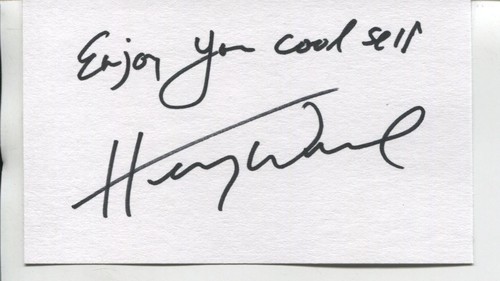 Enjoy you cool self
Henry Wand